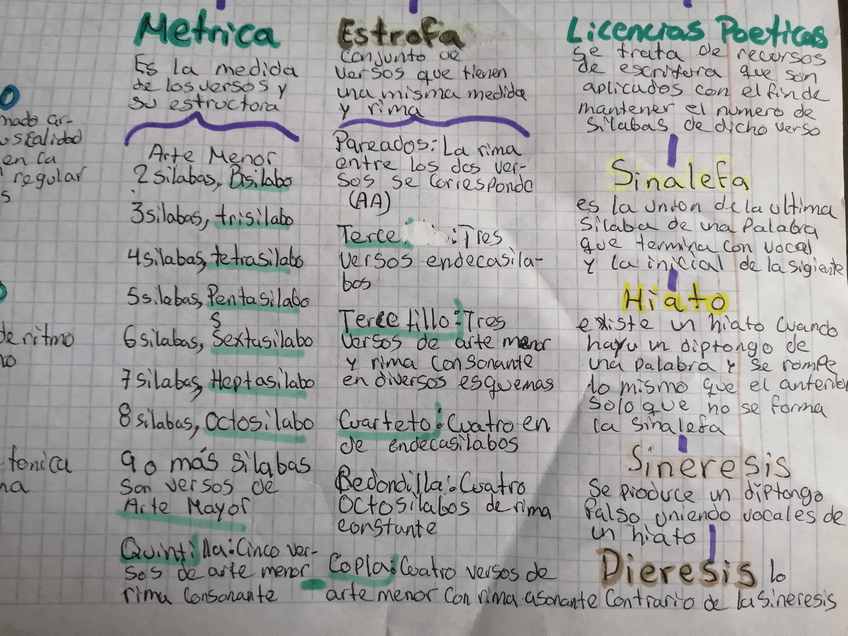 mado car-
usicalidad
en ca
regular
s
de ritmo
no
tonica
na
Metrica
Es la medida
de los versos y
su estructora
Arte Menor
2 silabas, Bisilabo
3 silabas, trisilabo
4 silabas, tetrasilabo
5 silabas, Pentasilabo
s
6 silabas, Sextasilabo
7 silabas, Heptasilabo
8 silabas, Octosilabo
9 o más silabas
son versos de
Arte Mayor
Quintilla: Cinco ver-
sos de arte menor
rima consonante
Estrofa
conjunto de
versos que tienen
una misma medida
y rima
Pareados: La rima
entre los dos ver-
sos se corresponde
(AA)
Terce : Tres
versos endecasila-
bos
Tercetillo: Tres
versos de arte menor
y rima consonante
en diversos esquemas
Cuarteto: Cuatro en
de endecasilabos
Redondilla: Cuatro
octosilabos de rima
constante
Copla: Cuatro versos de
arte menor con rima asonante
Licencias Poeticas
se trata de recursos
de escritura que son
aplicados con el fin de
mantener el numero de
silabas de dicho verso
Sinalefa
es la union de la ultima
silaba de una palabra
que termina con vocal
y la inicial de la sigiente
Hiato
existe un hiato cuando
hayu un diptongo de
una palabra y se rompe
lo mismo que el anterior
solo que no se forma
la sinalefa
Sineresis
Se produce un diptongo
falso uniendo vocales de
un hiato
Dieresis lo
contrario de la sineresis